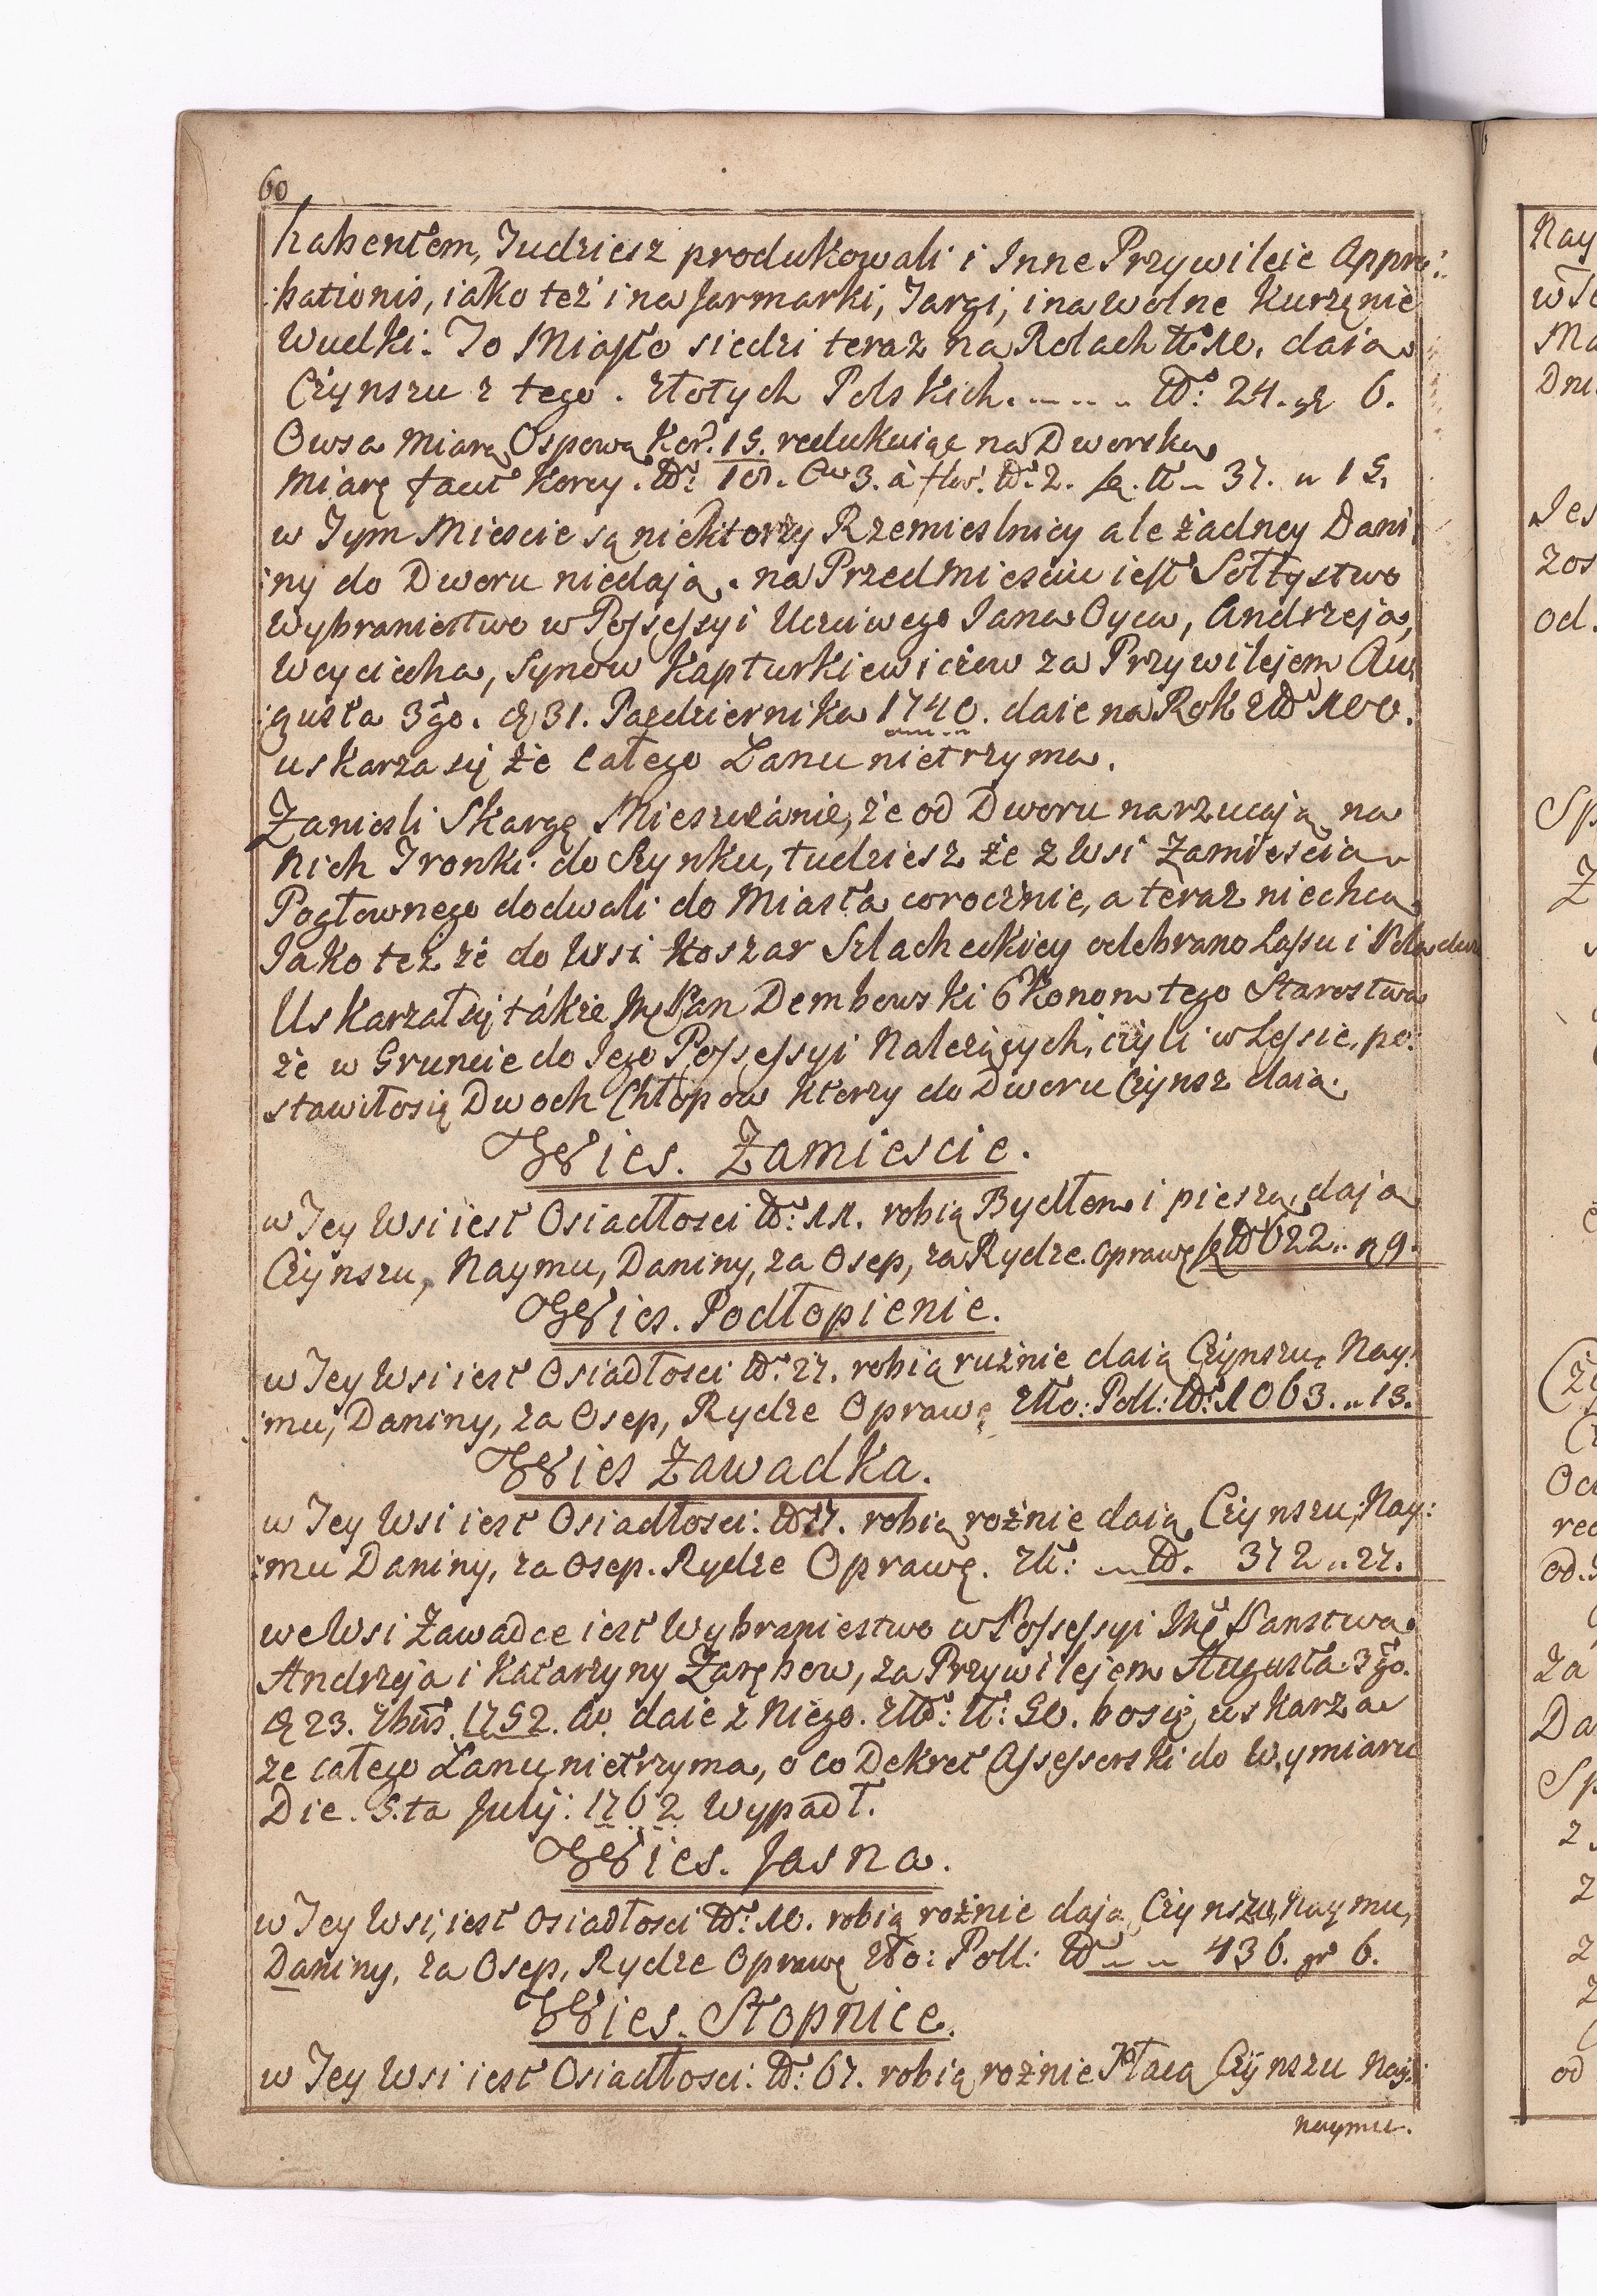 60
habentem, Tudziesz produkowali i Inne Przywileie Appro:
:bationis, iako też i na Jarmarki, Targi, i na wolne Kurzęnie
Wudki. To Miasto siedzi teraz na Rolach No 10. daią
Czynszu z tego. złotych Polskich. No: 24. gr 6.
Owsa Miarą Ospową Kor. 15. redukuiąc na Dworską
Miarę facit Korcy. No: 18. 3. à No: 2. 37. " 15.
w Tym Miescie są niektorzy Rzemieslnicy ale żadney Dani
:ny do Dworu niedają. na Przedmiesciu iest Sołtystwo
Wybraniectwo w Possessyi Uczciwego Jana Oyca, Andrzeja,
Woyciecha, Synow Kapturkiewiczow za Przywilejem Au
:gusta 3go. d. 31. Pazdziernika 1740. daie na Rok zł No 100.
uskarza się że Całego Łanu nietrzyma.
Zaniesli Skargę Mieszczanie, że od Dworu narzucają na
Nich Tronki do Szynku, tudziesz że z Wsi Zamiescia
Pogłownego dodwali do Miasta corocznie, a teraz niechcą
Jako też że do Wsi Koszar Szlacheckiey odebrano Lassu i
Uskarzał się tákże Pan Dembowski Ekonom tego Starostwa
że w Gruncie do Iego Possessyi Należących, czyli w Lesie, po:
stawiłosię Dwoch Chłopow Ktorzy do Dworu Czynsz daią.
Wies. Zamiescie.
w Tey Wsi iest Osiadłosci No: 11. robią Bydłem i pieszą, dają
Czynszu, Naymu, Daniny, za Osep, za Rydze. Oprawę No 622. " 9.
Wies. Podłopienie.
w Tey Wsi iest Osiadłosci No: 27. robią ruznie daią Czynszu, Nay:
:mu, Daniny, za Osep, Rydze Oprawę Zło: Poll: No: 1063. " 13.
Wies Zawadka.
w Tey Wsi iest Osiadłosci: No 17. robią rożnie daią, Czynszu, Nay:
:mu Daniny, za Osep. Rydze Oprawę. Zł: No. 372 " 27.
we Wsi Zawadce iest Wybraniectwo w Possessyi Panstwa
Andrzeja i Katarzyny Zarębow, za Przywilejem Augusta 3go.
d. 23. 1752. daie z Niego. 50. bosię uskarza
że całego Łanu nietrzyma, o co Dekret Assessorski do Wymiaru
Die. 5.ta July: 1762 wypadł.
Wies. Jasna.
w Tey Wsi, iest Osiadłosci No: 10. robią rożnie dają, Czynszu, Naymu,
Daniny, za Osep, Rydze Oprawę Zło: Poll: No 436. gr 6.
Wies. Słopnice.
w Tey Wsi iest Osiadłosci: No: 67. robią rożnie Płacą Czynszu Nay:
naymu.